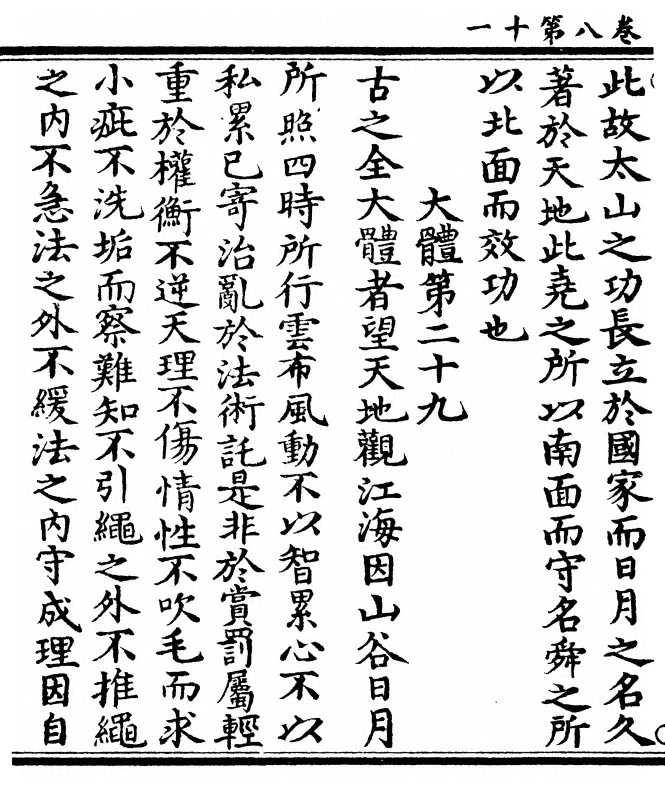 卷八第十一
此故太山之功長立於國家而日月之名久
著於天地此堯之所以南面而守名舜之所
以北面而效功也
大體第二十九
古之全大體者望天地觀江海因山谷日月
所照四時所行雲布風動不以智累心不以
私累已寄治亂於法術託是非於賞罰屬輕
重於權衡不逆天理不傷情性不吹毛而求
小疵不洗垢而察難知不引繩之外不推繩
之内不急法之外不緩法之内守成理因自